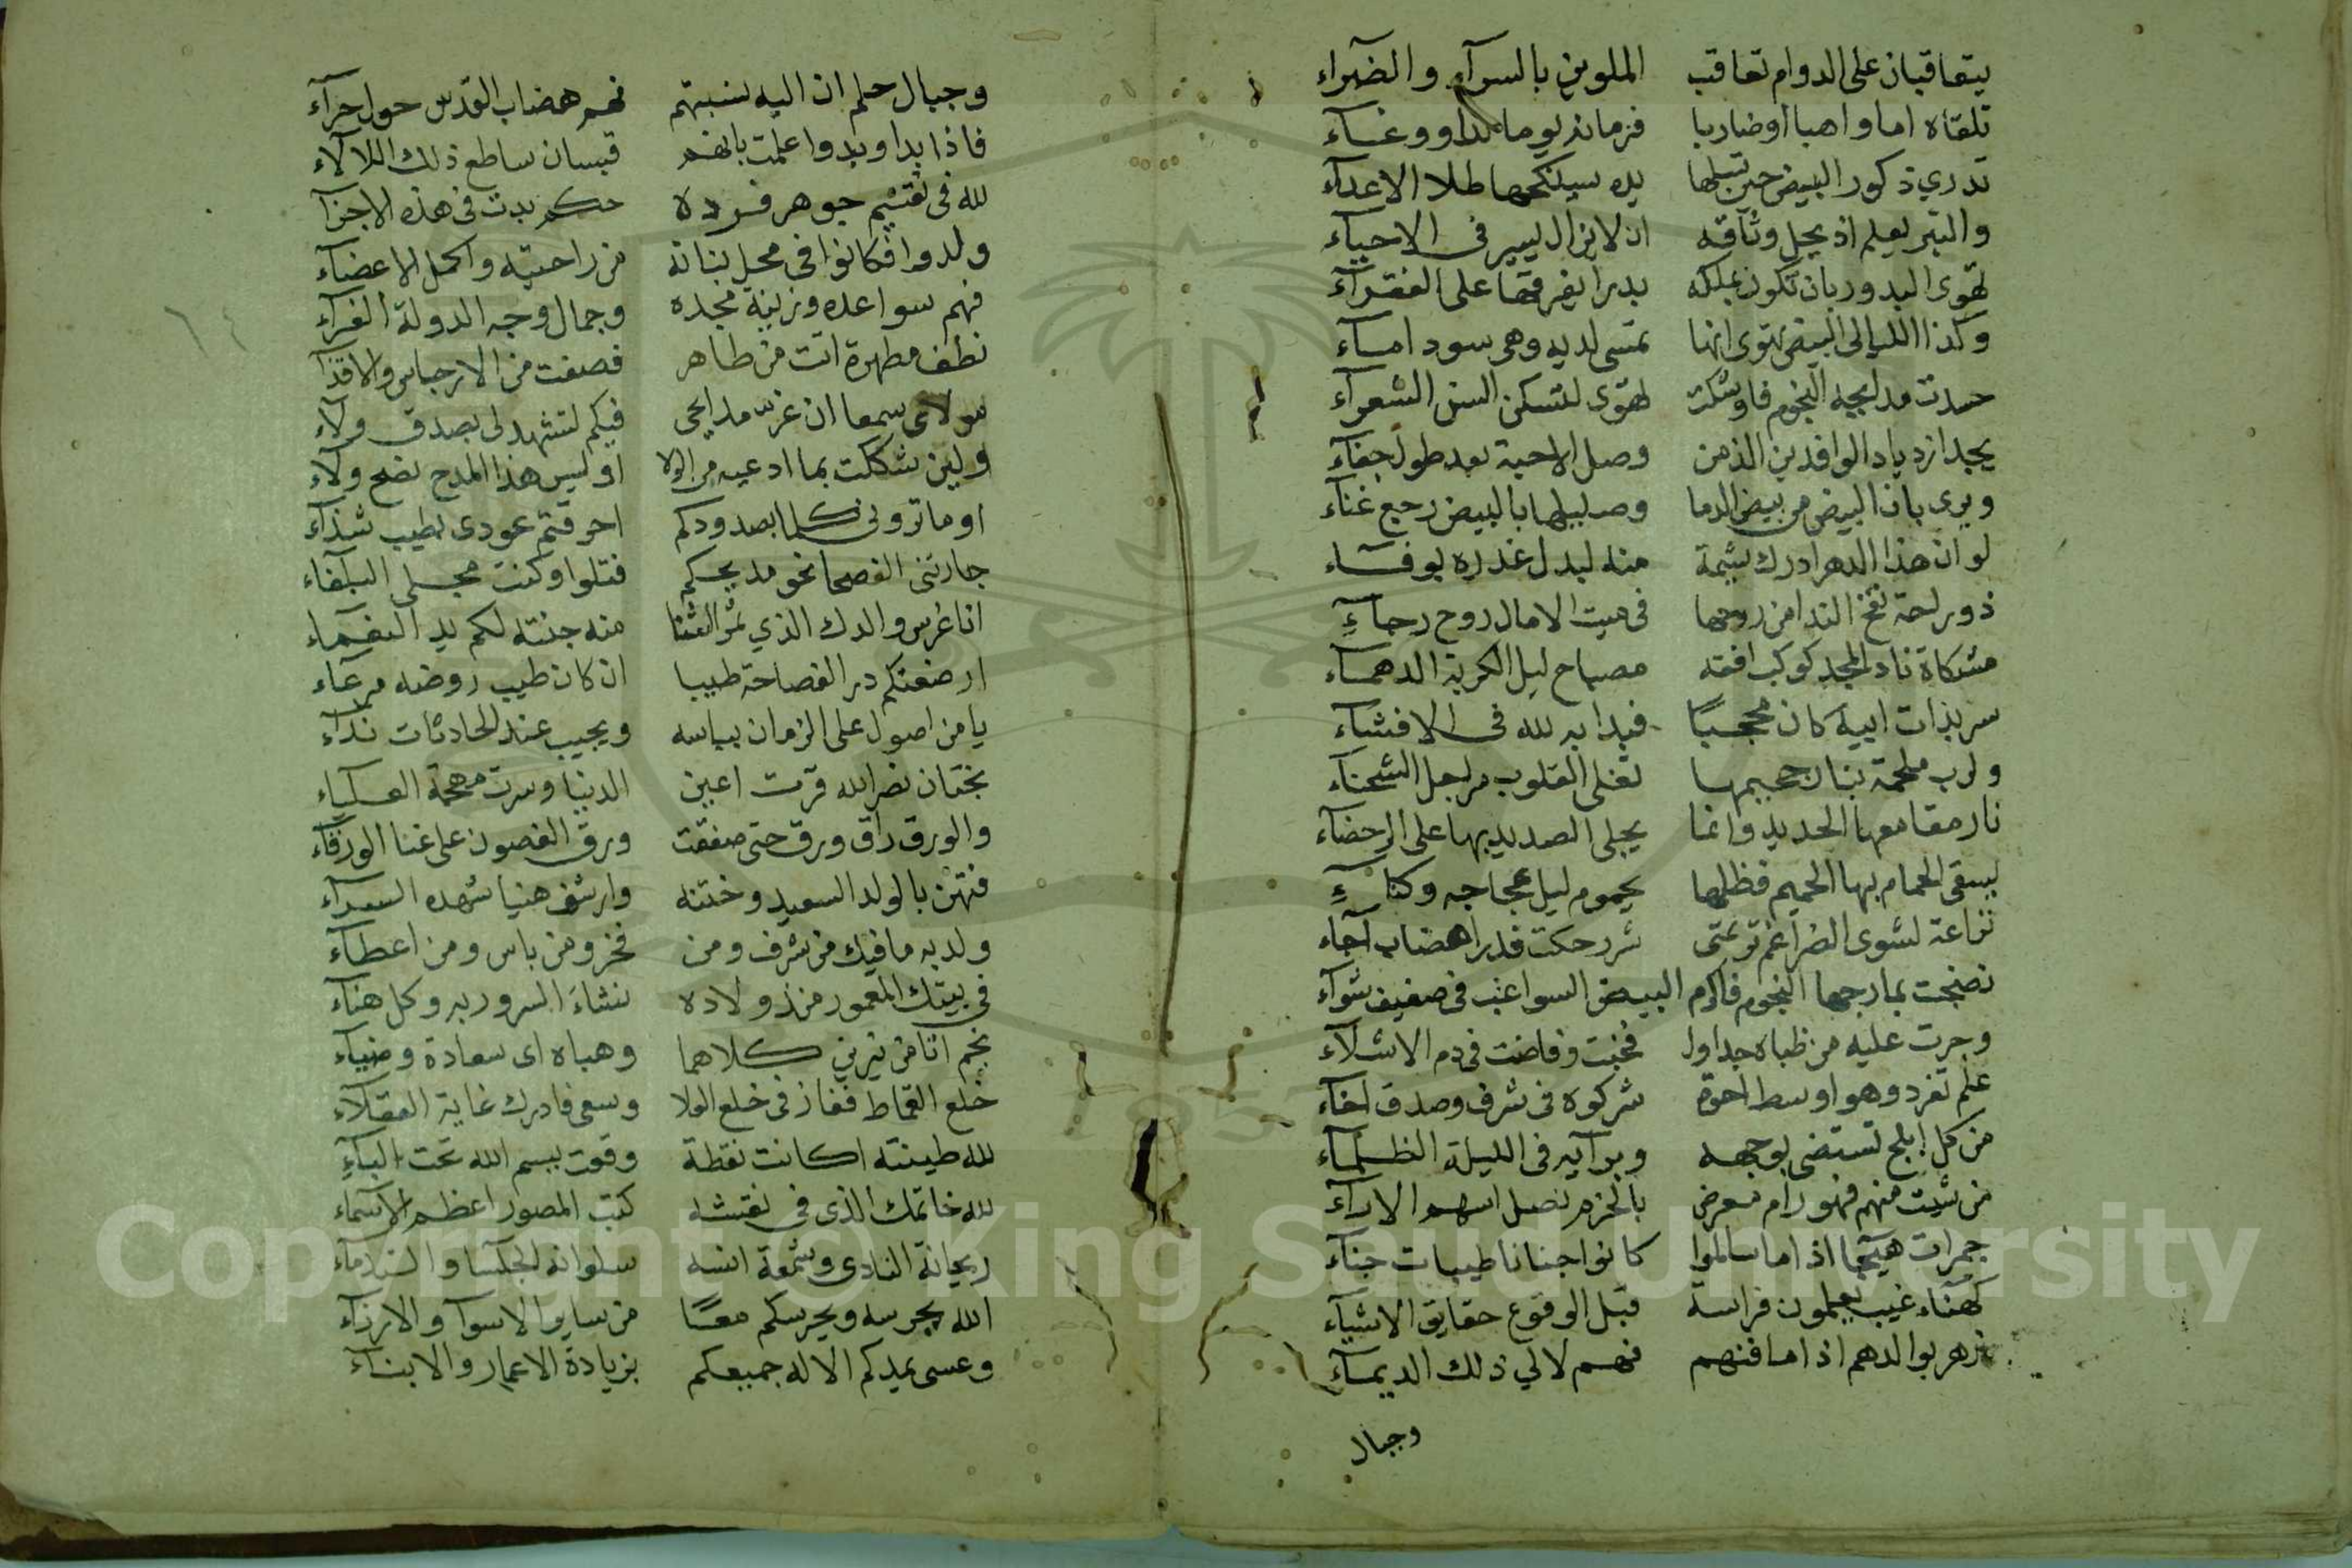 يتعاقبان على الدوام تعاقب الملوين بالسرآء والضرآء
تلقاه اما واهبا اوضاربا فزمانه يوما ندا ووغاء
تدري ذكور البيض حين تسلها يده سينكحها طلا الاعدآء
والتبر يعلم اذ يحل وثاقه ان لا يزال يسير في الاحياء
تهوى البدور بان تكون بملكه بدرا يفرقها على الفقرآء
وكذا الليالي البيض تهوى انها تمسى لديه وهي سود امآء
حسدت مدايحه النجوم فاوشكت تهوى لتسكن السن الشعرآء
يجد ازدياد الوافدين الذ من وصل الاحبة بعد طول جفاء
ويرى بان البيض من بيض الدما وصليلها بالبيض رجع غناء
لو ان هذا الدهر ادرك شيمة منه لبدل غدره بوفاء
ذو راحة نفخ الندا من روحها في ميت الامال روح رجاء
مشكاة ناد المجد كوكب افقه مصباح ليل الكربة الدهماء
سر بذات ابيه كان محجبًا فبدا به لله في الافشاء
ولرب ملحمة بنار جحيمها تغلى القلوب مراجل الشحناء
نار مقامعها الحديد وانما يجلى الصديد بها على الرحضاء
يسقى الحمام بها الحميم فظلها يحموم ليل عجاجه وكناء
نزاعة لشوى الضراغم ترتمى شررحكت قدرا هضاب آجاء
نضجت بمارجها النجوم فاكرم البيض السواغب في صفيف شواء
وجرت عليه من ظباه جداول فخبت وفاضت في دم الاشلاء
علم تفرد وهو اوسط اخوة شركوه في شرف وصدق اخاء
من كل ابلج تستضى بوجهه وبرآيه في الليلة الظلماء
من شيت منهم فهو رام معرض بالحزم نصل اسهم الارآء
جمرات هيجا اذا ما سالموا كانوا جنانا طيبات جناء
كهناء غيب يعلمون فراسة قبل الوقوع حقايق الاشياء
زهر بوا لدهم اذا ما قنهم فهم لالي ذلك الديماء
وجبال
وجبال حلم ان اليه نسبتهم فهم هضاب القدس حول حرآء
فاذا بدا وبدوا علمت بانهم قبسان ساطع ذلك اللالاء
لله في تقسيم جوهر فرده حكم بدت في هذه الاجزا
ولدوا فكانوا في محل بنانه من راحتيه واكمل الاعضاء
فهم سواعده وزينة مجده وجمال وجه الدولة الغرآء
نطف مطهرة اتت من طاهر فصفت من الارجاس والاقذا
مولاى سمعا ان غر مدايحي فيكم لتشهد لى بصدق ولاء
ولين شككت بما ادعيه من الولا اوليس هذا المدح نصح ولاء
اوما ترونى كلما بصدودكم احرقتم عودى يطيب شذاء
جارتنى الفصحا نحو مديحكم فتلوا وكنت مجلى البلغاء
انا غرس والدك الذي ثمر الثنا منه جنته لكم يد النعماء
ارضعتكم در الفصاحة طيبا ان كان طيب روضه مرعاء
يا من اصول على الزمان بباسه ويجيب عند الحادثات نداء
بختان نصر الله قرت اعين الدنيا وسرت مهجة العلياء
والورق راق ورق حتى صفقت ورق الغصون على غنا الورقاء
فتهن بالولد السعيد وختنه وارشف هنيا شهده السرآء
ولد به ما فيك من شرف ومن فخر ومن باس ومن اعطاء
في بيتك المعمور منذ ولاده نشاء السرور به وكل هناء
نجم اتا من نيرين كلاهما وهباه اى سعادة وضياء
خلع القماط ففاز في خلع العلا وسعى فادرك غاية العقلاء
لله طينته اكانت نقطة وقعت ببسم الله تحت الباء
لله خاتمك الذى في نقشه كتب المصور اعظم الاسماء
ريحانة النادى وشمعة انسه سلوانة الجلسا والندماء
الله يحرسه ويحرسكم معًا من ساير الاسوآ والارزاء
وعسى يمدكم الاله جميعكم بزيادة الاعمار والابناء
Copyright © King Saud University
1957